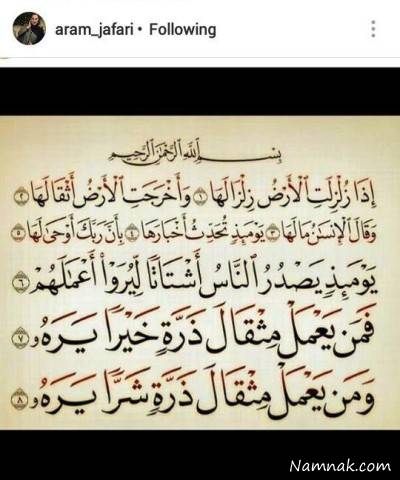 aram_jafari • Following
بِسْمِ ٱللَّهِ ٱلرَّحْمَٰنِ ٱلرَّحِيمِ
إِذَا زُلْزِلَتِ ٱلْأَرْضُ زِلْزَالَهَا ١ وَأَخْرَجَتِ ٱلْأَرْضُ أَثْقَالَهَا ٢
وَقَالَ ٱلْإِنسَٰنُ مَا لَهَا ٣ يَوْمَئِذٍ تُحَدِّثُ أَخْبَارَهَا ٤ بِأَنَّ رَبَّكَ أَوْحَىٰ لَهَا ٥
يَوْمَئِذٍ يَصْدُرُ ٱلنَّاسُ أَشْتَاتًا لِّيُرَوْا۟ أَعْمَٰلَهُمْ ٦
فَمَن يَعْمَلْ مِثْقَالَ ذَرَّةٍ خَيْرًا يَرَهُۥ ٧
وَمَن يَعْمَلْ مِثْقَالَ ذَرَّةٍ شَرًّا يَرَهُۥ ٨
Namnak.com